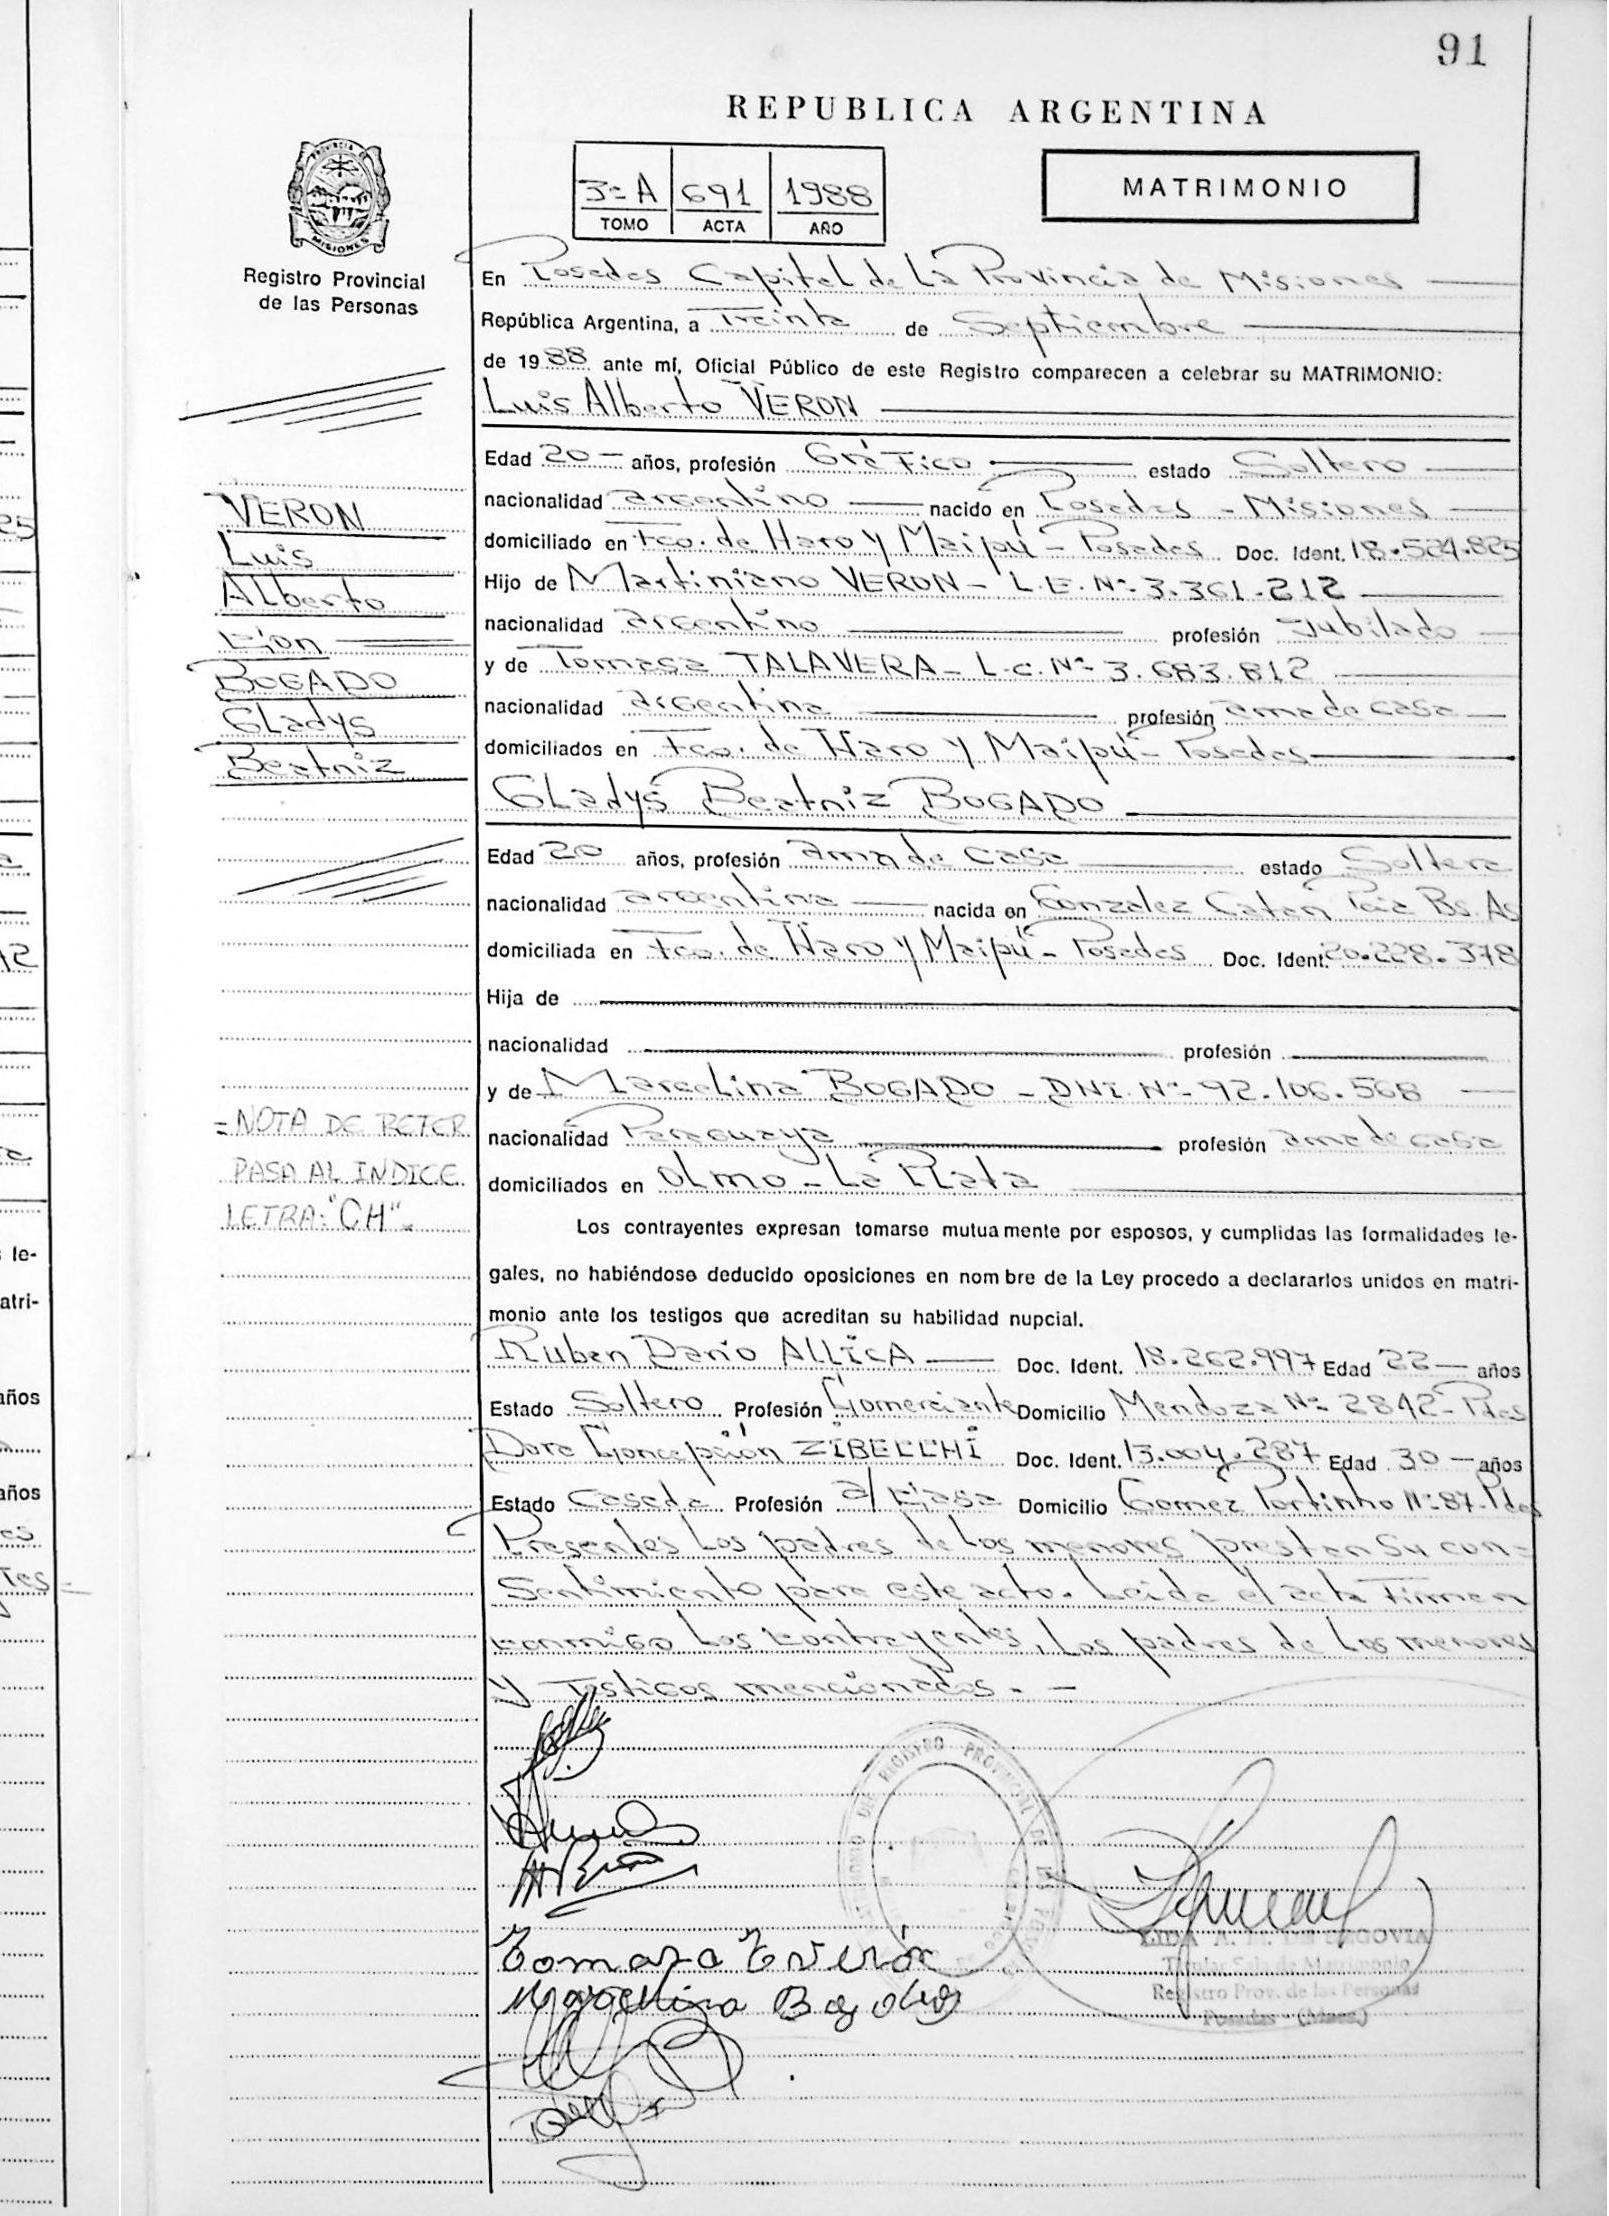 91
REPUBLICA ARGENTINA
PROVINCIA DE
MISIONES
Registro Provincial
de las Personas
3º A 691 1988
TOMO ACTA AÑO
MATRIMONIO
En Posadas Capital de La Provincia de Misiones
República Argentina, a Treinta de Septiembre
de 1988 ante mí, Oficial Público de este Registro comparecen a celebrar su MATRIMONIO:
Luis Alberto VERON
Edad 20 - años, profesión Gráfico estado Soltero
nacionalidad argentino nacido en Posadas - Misiones
domiciliado en Fco. de Haro y Maipú - Posadas Doc. Ident. 18.524.825
Hijo de Martiniano VERON - L.E. Nº 3.361.212
nacionalidad argentino profesión Jubilado
y de Tomasa TALAVERA - L.C. Nº 3.683.812
nacionalidad argentina profesión ama de casa
domiciliados en Fco. de Haro y Maipú - Posadas
Gladys Beatriz BOGADO
Edad 20 años, profesión ama de casa estado Soltera
nacionalidad argentina nacida en Gonzalez Catan Pcia Bs. As
domiciliada en Fco. de Haro y Maipú - Posadas Doc. Ident. 20.228.378
Hija de
nacionalidad profesión
y de Marcelina BOGADO - DNI. Nº 92.106.568
nacionalidad Paraguaya profesión ama de casa
domiciliados en Olmo - La Plata
Los contrayentes expresan tomarse mutuamente por esposos, y cumplidas las formalidades le-
gales, no habiéndose deducido oposiciones en nombre de la Ley procedo a declararlos unidos en matri-
monio ante los testigos que acreditan su habilidad nupcial.
Ruben Dario ALLICA Doc. Ident. 18.262.997 Edad 22 - años
Estado Soltero Profesión Comerciante Domicilio Mendoza Nº 2842 - Pdas
Dora Concepción ZIBECCHI Doc. Ident. 13.004.287 Edad 30 - años
Estado Casada Profesión a/ casa Domicilio Gomez Portinho Nº 87. Pdas
Presentes Los padres de Los menores prestan Su con=
Sentimiento para este acto. Leida el acta Firman
conmigo Los contrayentes, Los padres de Los menores
y Testigos mencionados. -
VERON
Luis
Alberto
con
BOGADO
Gladys
Beatriz
= NOTA DE REFER
PASA AL INDICE
LETRA: "CH".
Marcelina Bogado
DEL REGISTRO PROVINCIAL DE LAS
SEGOVIA
Titular Sala de Matrimonio
Registro Prov. de las Personas
Posadas - (Mnes.)
25
12
le-
atri-
años
años